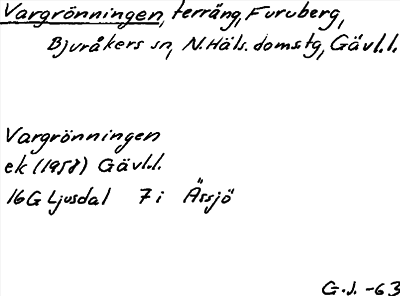 Vargrönningen, terräng, Furuberg,
Bjuråkers sn, N.Häls.domstg, Gävl.l.
Vargrönningen
ek (1958) Gävl.l.
16G Ljusdal 7i Ässjö
G.J. -63